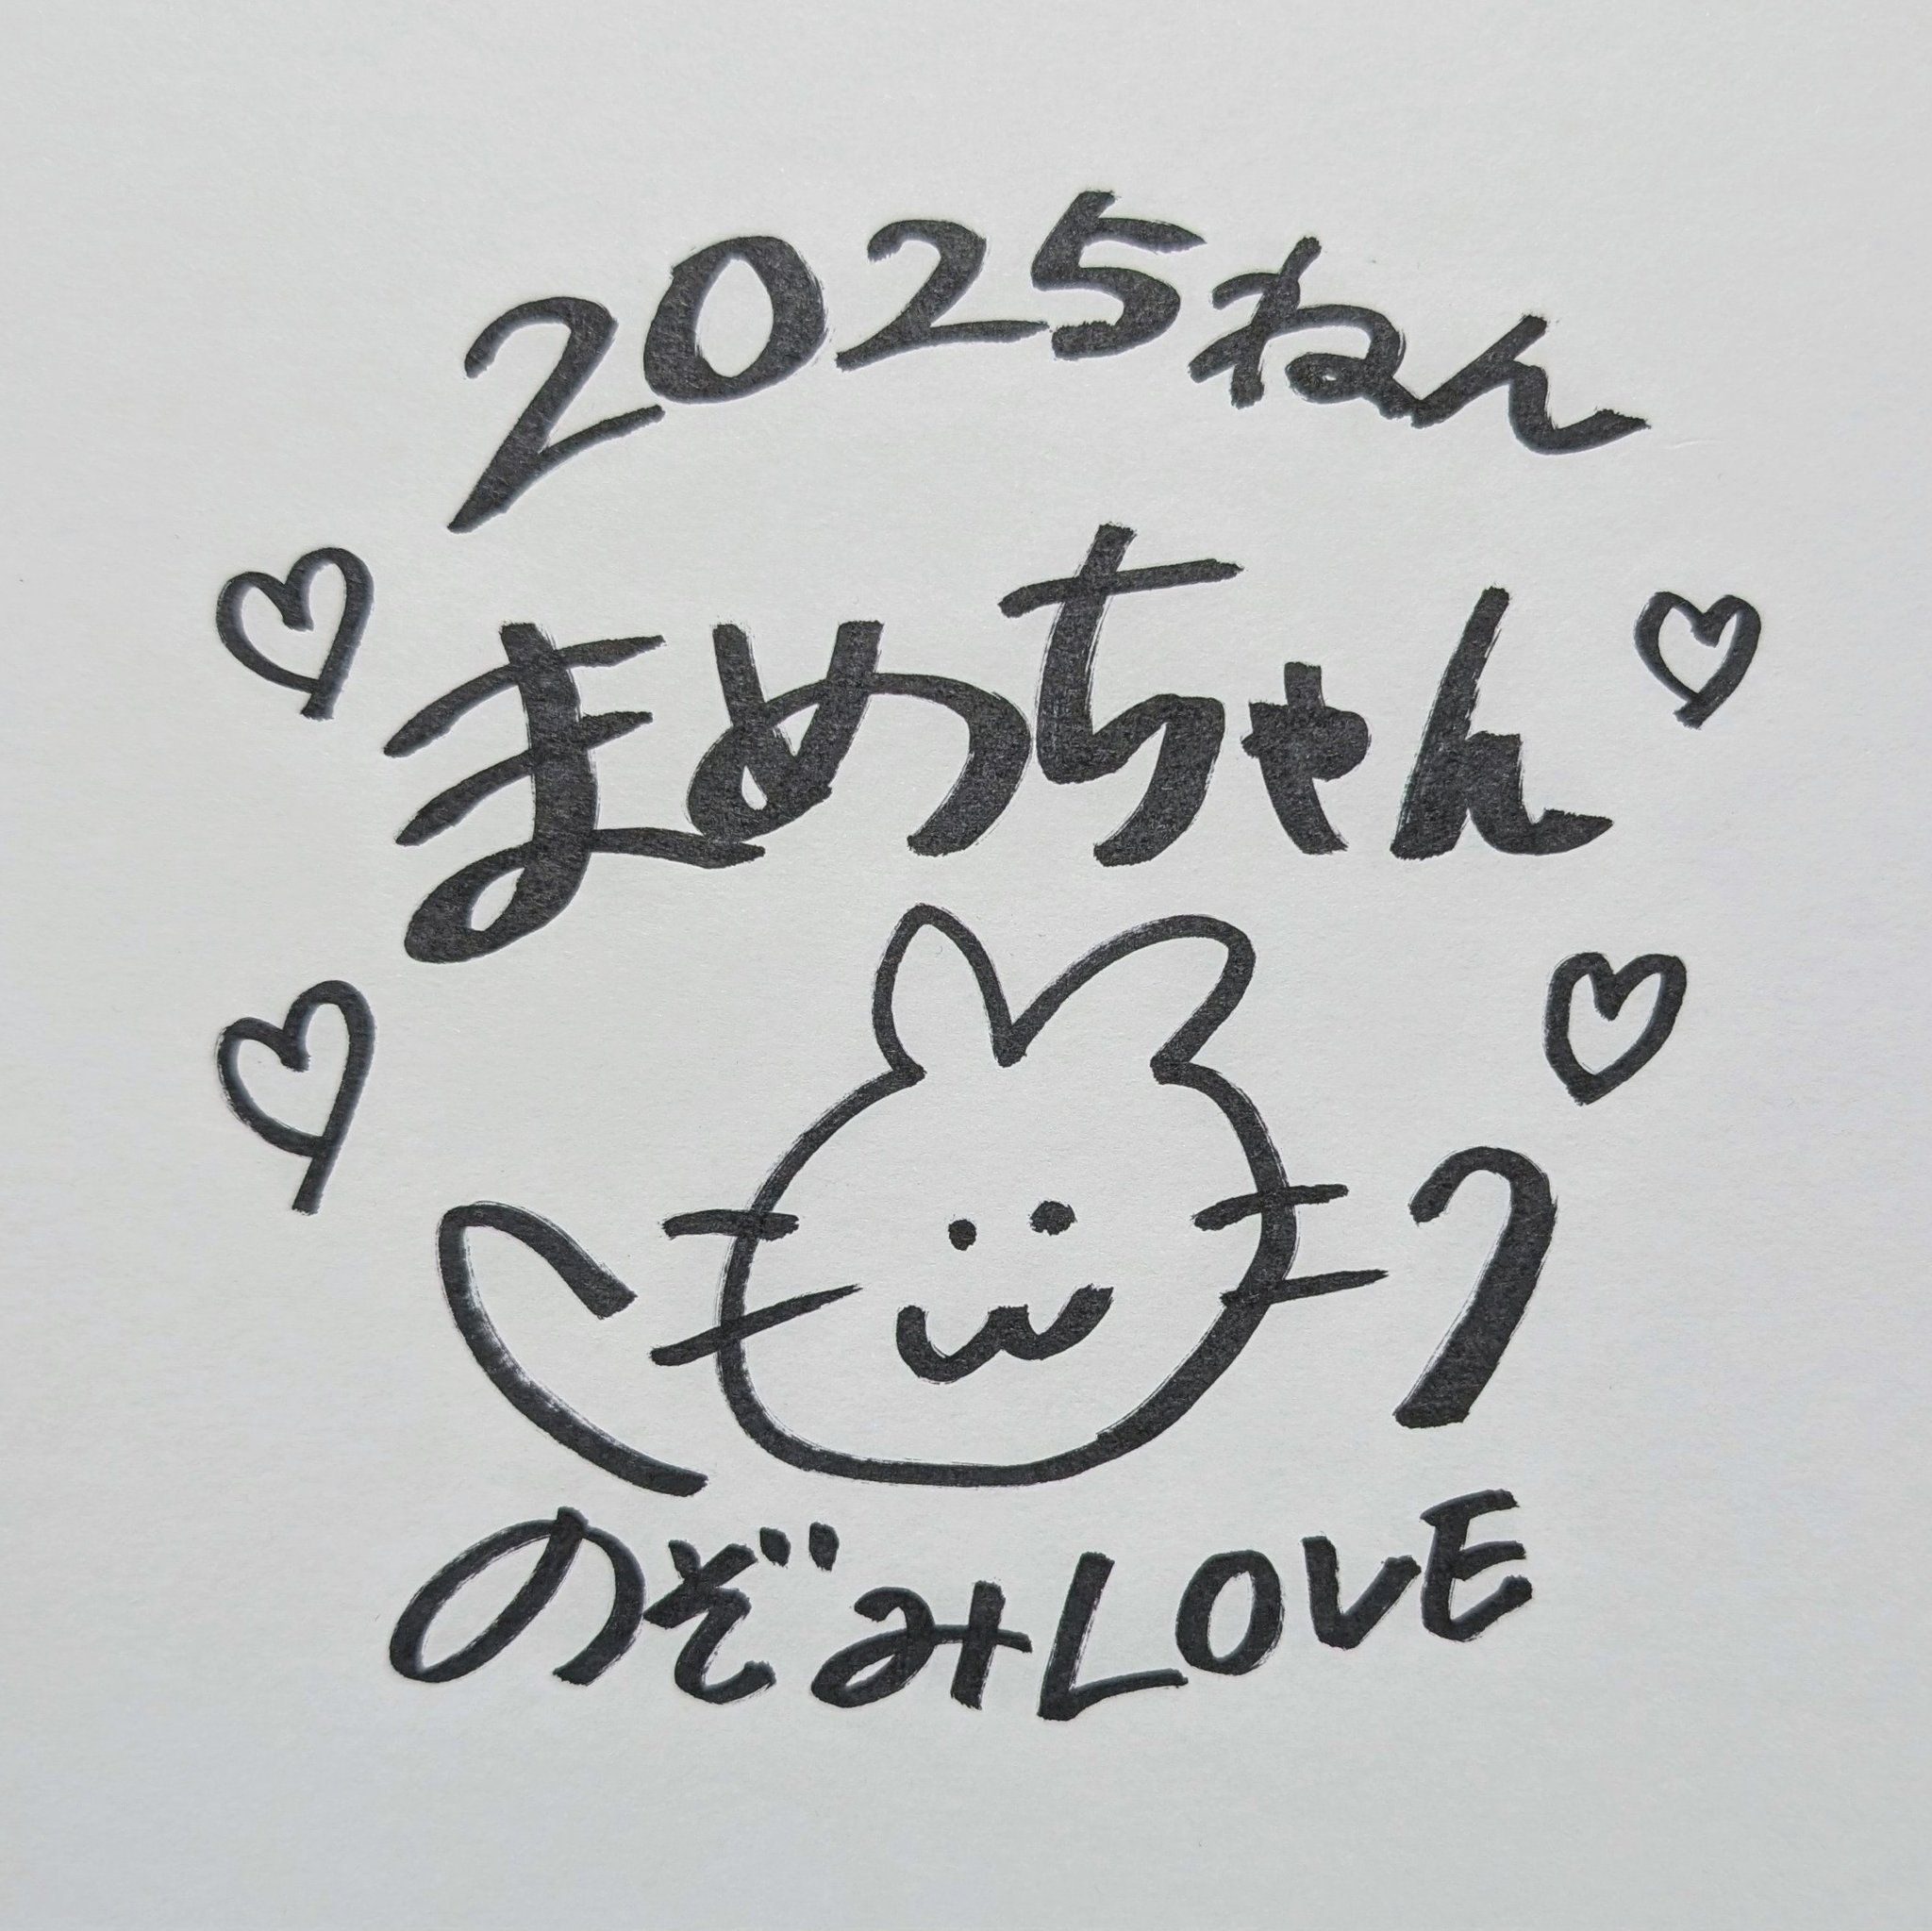 2025ねん
まめちゃん
のぞみLOVE